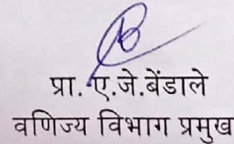 प्रा. ए.जे.बेंडाले
वणिज्य विभाग प्रमुख